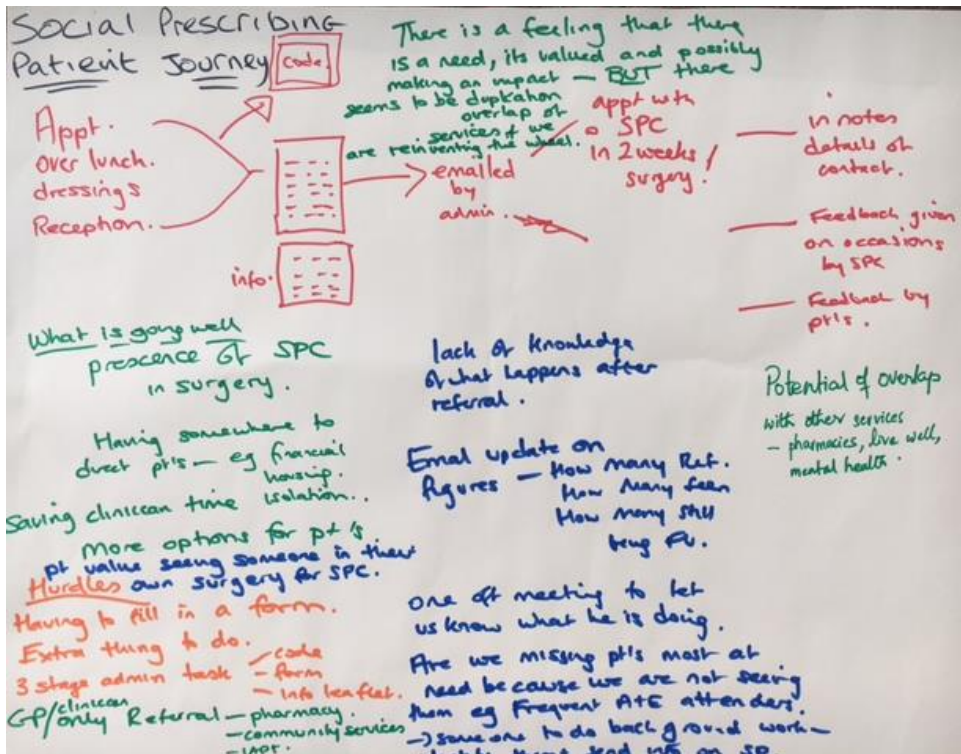 Social Prescribing
Patient Journey
code.
There is a feeling that there
is a need, its valued and possibly
making an impact — BUT there
seems to be duplication
overlap of
services & we
are reinventing the wheel.
Appt.
over lunch.
dressings
Reception.
info.
emailed
by
admin.
appt with
a SPC
in 2 weeks /
surgery.
in notes
details of
contact.
Feedback given
on occasions
by SPC
Feedback by
pt's.
What is going well
prescence of SPC
in surgery.
Having somewhere to
direct pt's — eg financial
housing.
isolation.
Saving clinician time
More options for pt's
pt value seeing someone in their
own surgery for SPC.
Hurdles
Having to fill in a form.
Extra thing to do.
3 stage admin task
code
- form
- info leaflet.
GP/clinician
only Referral — pharmacy.
— community services
— IAPT.
lack of knowledge
of what happens after
referral.
Email update on
figures — How many Ref.
How many seen
How many still
being FU.
one off meeting to let
us know what he is doing.
Are we missing pt's most at
need because we are not seeing
them eg Frequent A+E attenders.
→ someone to do background work —
send info on SP
Potential of overlap
with other services
— pharmacies, live well,
mental health.